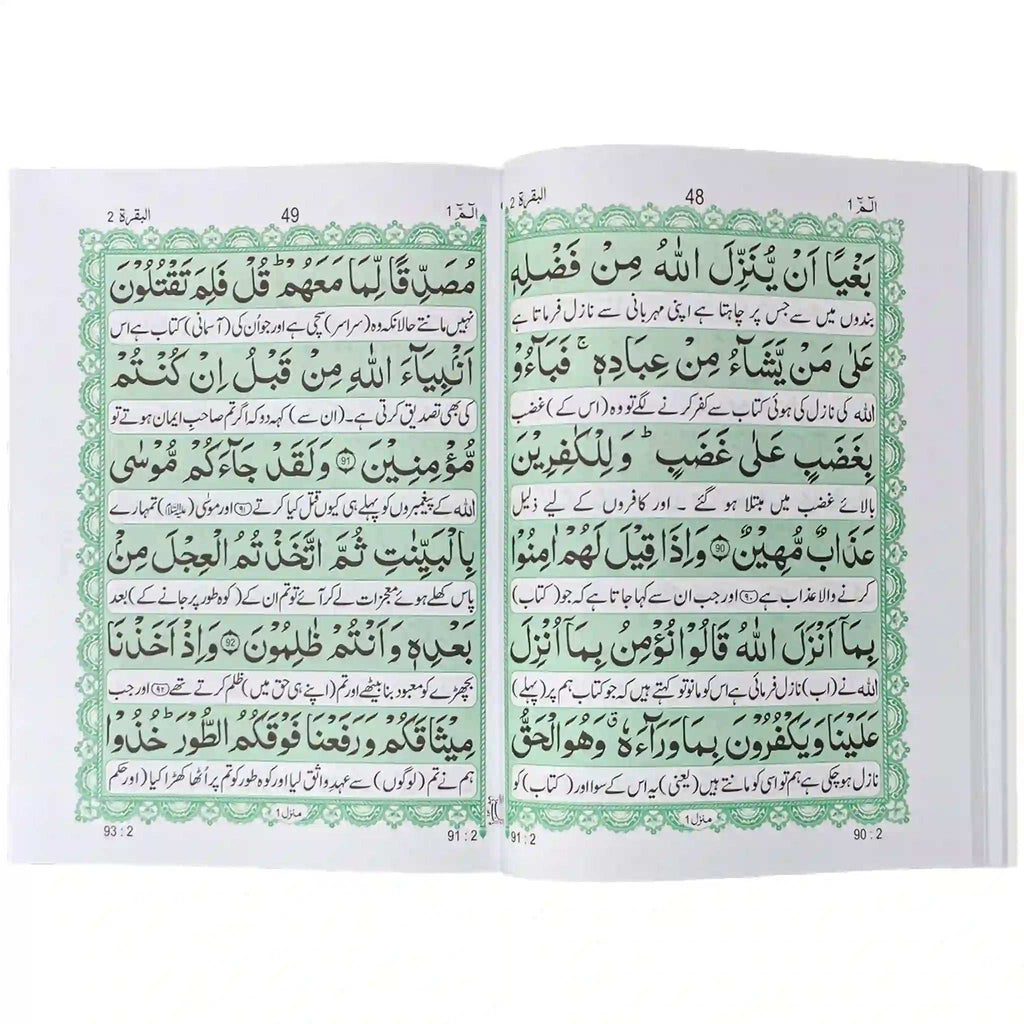 الٓمّٓ 1
48
البقرة 2
بَغْيًا اَنْ يُّنَزِّلَ اللّٰهُ مِنْ فَضْلِهٖ
بندوں میں سے جس پر چاہتا ہے اپنی مہربانی سے نازل فرماتا ہے
عَلٰى مَنْ يَّشَآءُ مِنْ عِبَادِهٖ ۚ فَبَآءُوْ
اللہ کی نازل کی ہوئی کتاب سے کفر کرنے لگے تو وہ (اس کے) غضب
بِغَضَبٍ عَلٰى غَضَبٍ ؕ وَلِلْكٰفِرِيْنَ
بالائے غضب میں مبتلا ہو گئے ۔ اور کافروں کے لیے ذلیل
عَذَابٌ مُّهِيْنٌ 90 وَاِذَا قِيْلَ لَهُمْ اٰمِنُوْا
کرنے والا عذاب ہے ۹۰ اور جب ان سے کہا جاتا ہے کہ جو (کتاب)
بِمَآ اَنْزَلَ اللّٰهُ قَالُوْا نُؤْمِنُ بِمَآ اُنْزِلَ
اللہ نے (اب) نازل فرمائی ہے اس کو مانو تو کہتے ہیں کہ جو کتاب ہم پر (پہلے)
عَلَيْنَا وَيَكْفُرُوْنَ بِمَا وَرَآءَهٗ ۗ وَهُوَ الْحَقُّ
نازل ہو چکی ہے ہم تو اسی کو مانتے ہیں (یعنی) یہ اس کے سوا اور (کتاب) کو
منزل 1
90 : 2
91 : 2
الٓمّٓ 1
49
البقرة 2
مُصَدِّقًا لِّمَا مَعَهُمْ ؕ قُلْ فَلِمَ تَقْتُلُوْنَ
نہیں مانتے حالانکہ وہ (سراسر) سچی ہے اور جو اُن کی (آسمانی) کتاب ہے اس
اَنْۢبِيَآءَ اللّٰهِ مِنْ قَبْلُ اِنْ كُنْتُمْ
کی بھی تصدیق کرتی ہے۔ (ان سے) کہہ دو کہ اگر تم صاحب ایمان ہوتے تو
مُّؤْمِنِيْنَ 91 وَلَقَدْ جَآءَكُمْ مُّوْسٰى
اللہ کے پیغمبروں کو پہلے ہی کیوں قتل کیا کرتے ۹۱ اور موسٰی (علیہ السلام) تمہارے
بِالْبَيِّنٰتِ ثُمَّ اتَّخَذْتُمُ الْعِجْلَ مِنْۢ
پاس کھلے ہوئے معجزات لے کر آئے تو تم ان کے (کوہ طور پر جانے کے) بعد
بَعْدِهٖ وَاَنْتُمْ ظٰلِمُوْنَ 92 وَاِذْ اَخَذْنَا
بچھڑے کو معبود بنا بیٹھے اور تم (اپنے ہی حق میں) ظلم کرتے تھے ۹۲ اور جب
مِيْثَاقَكُمْ وَرَفَعْنَا فَوْقَكُمُ الطُّوْرَ ؕ خُذُوْا
ہم نے تم (لوگوں) سے عہد واثق لیا اور کوہ طور کو تم پر اُٹھا کھڑا کیا (اور حکم
منزل 1
91 : 2
93 : 2